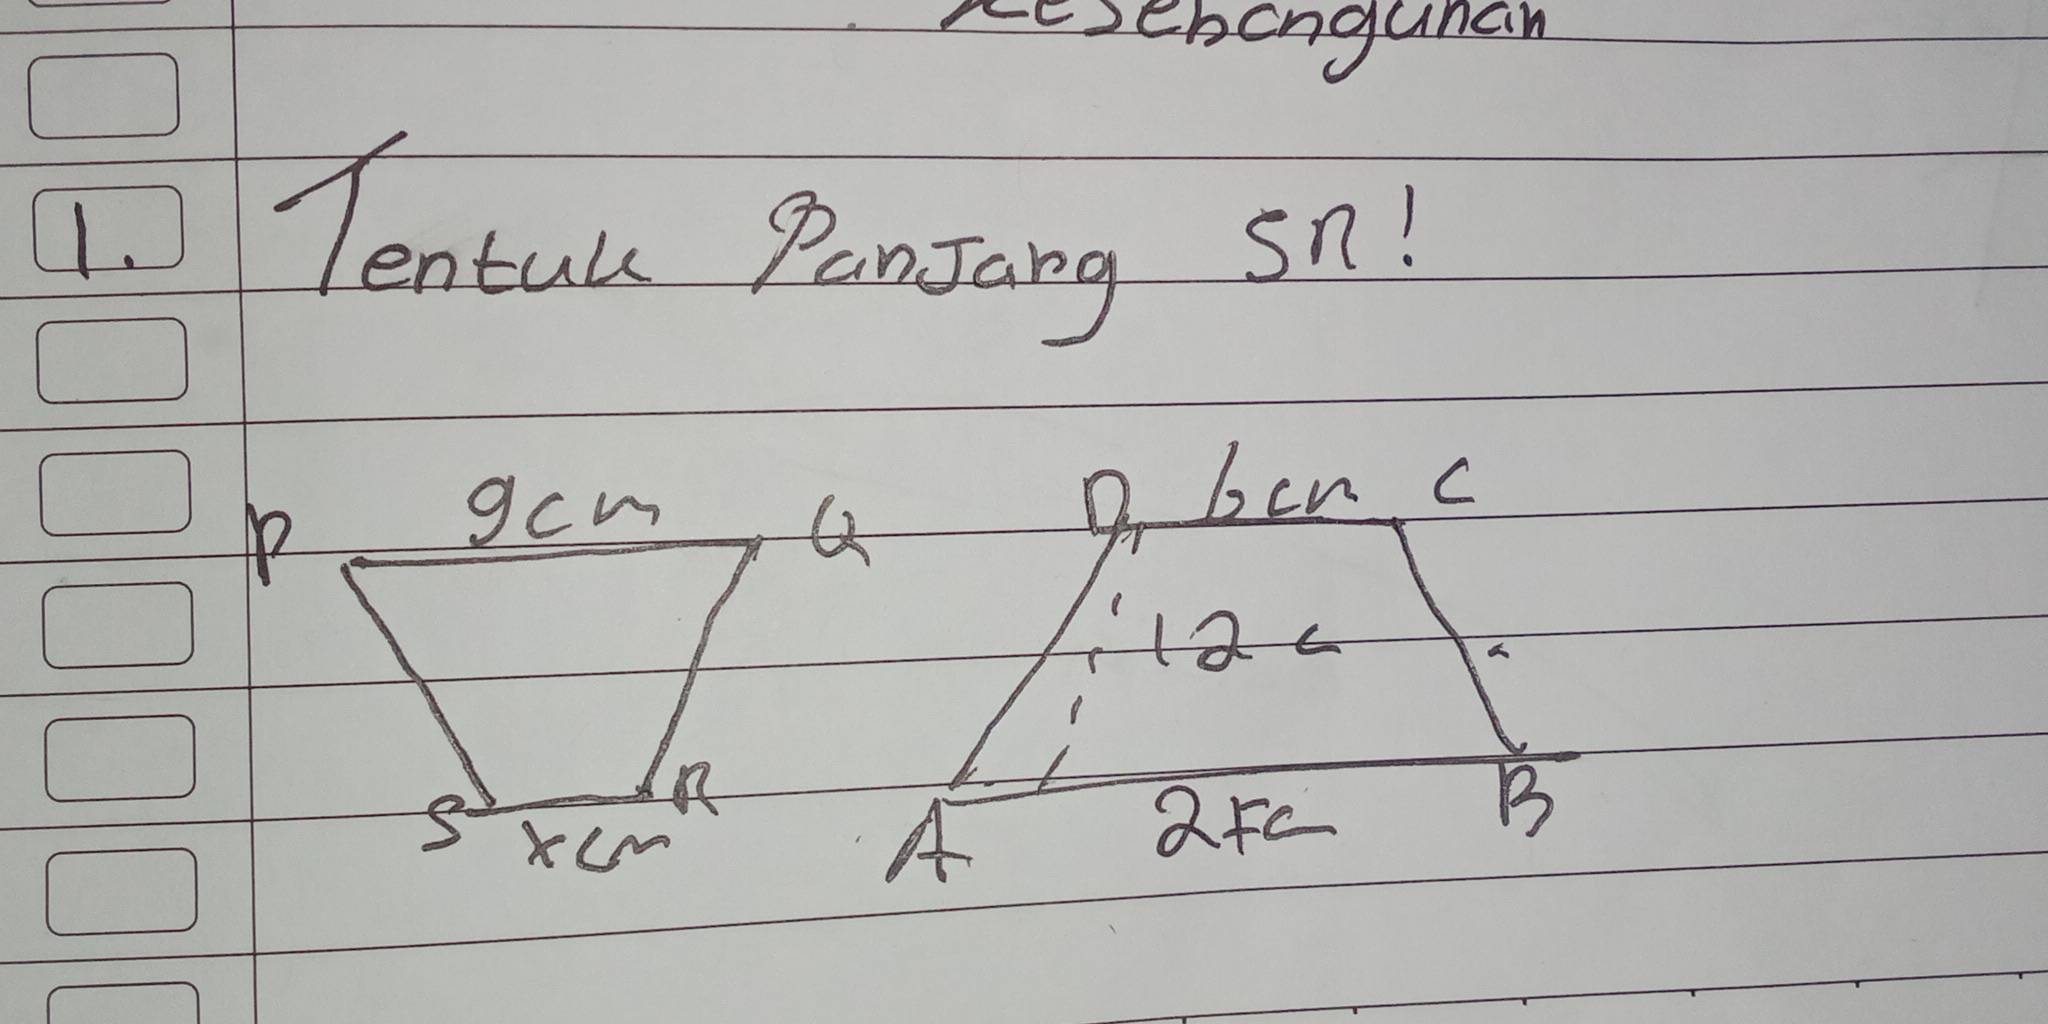 Kesebangunan
1. Tentuk Panjang SR!
9cm
P
Q
S
R
xcm
D
6cm
C
12 c
A
B